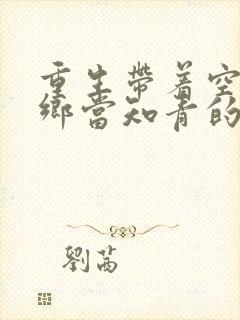 重生帶着空
鄉當知青的
劉茜